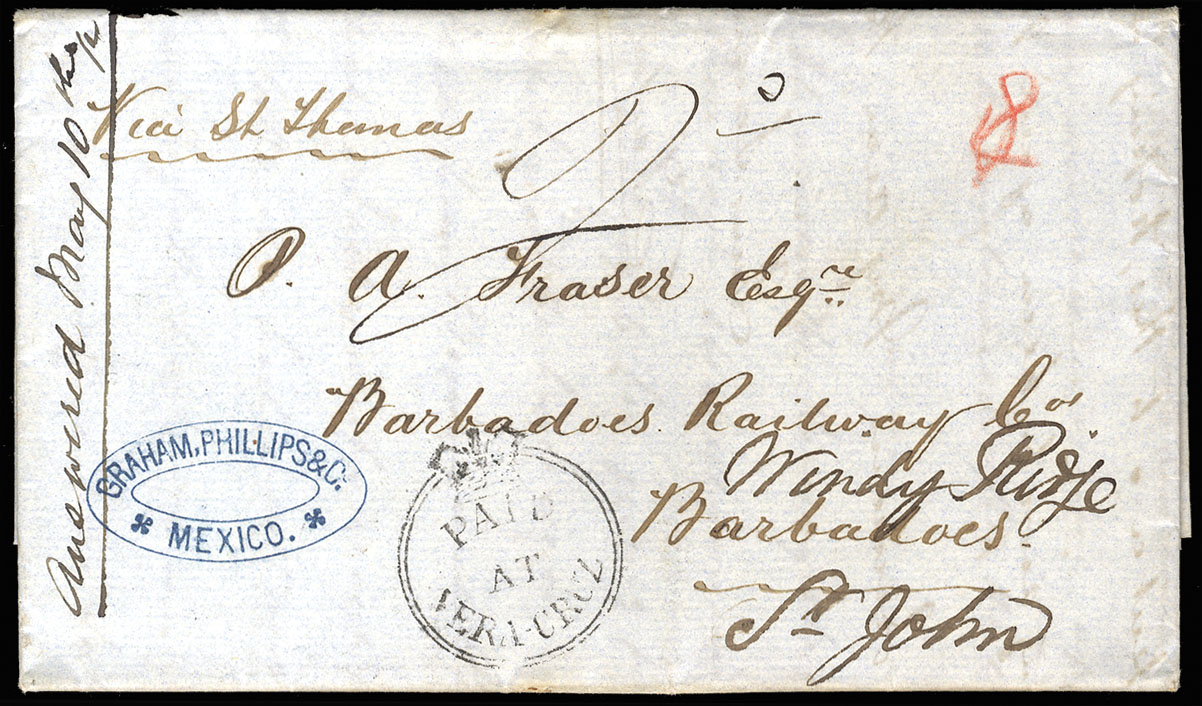 Answered May 10th
Via St Thomas
2
8
O. A. Fraser Esqre
Barbadoes Railway Co
Windy Ridge
Barbadoes
St John
GRAHAM, PHILLIPS & Co.
MEXICO.
PAID
AT
VERA-CRUZ